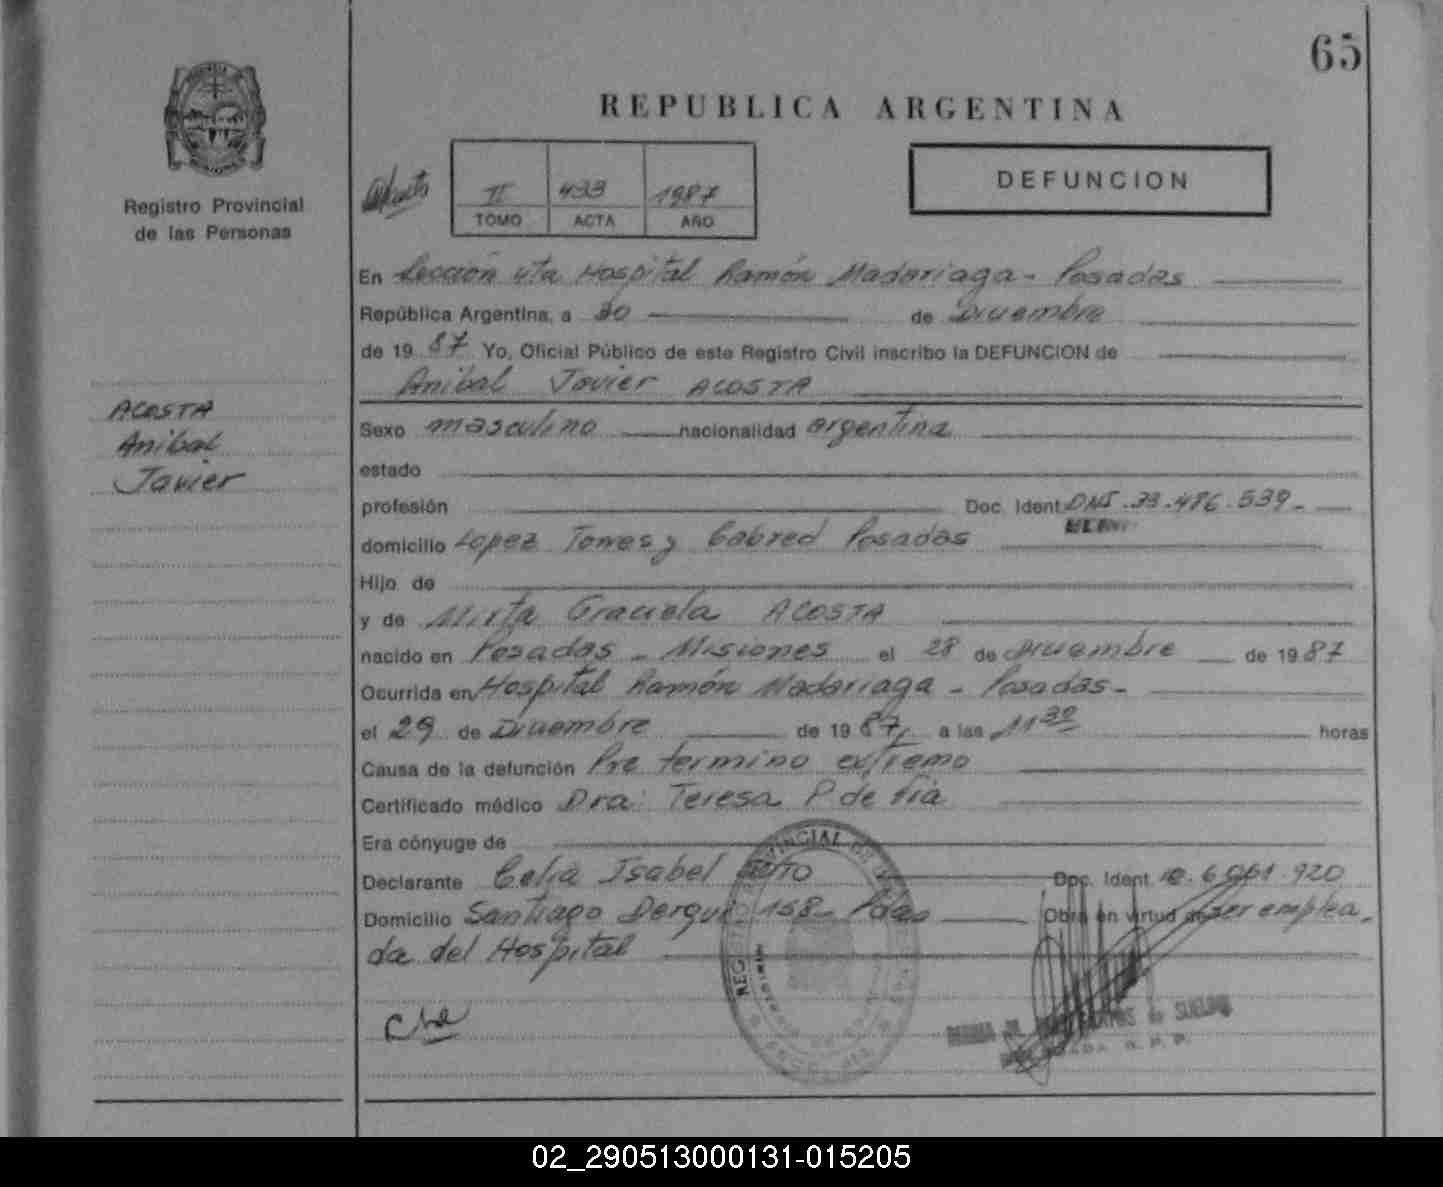 65
REPUBLICA ARGENTINA
Registro Provincial
de las Personas
II 433 1987
TOMO ACTA AÑO
DEFUNCION
En Sección 4ta Hospital Ramón Madariaga - Posadas
República Argentina, a 30 de Diciembre
de 19 87 Yo, Oficial Público de este Registro Civil inscribo la DEFUNCION de
Anibal Javier ACOSTA
ACOSTA
Anibal
Javier
Sexo masculino nacionalidad argentina
estado
profesión Doc. Ident. DNI. 33.486.539.-
domicilio Lopez Torres y Cabred Posadas
Hijo de
y de Mirta Graciela ACOSTA
nacido en Posadas - Misiones el 28 de Diciembre de 19 87
Ocurrida en Hospital Ramón Madariaga - Posadas-
el 29 de Diciembre de 19 87, a las 11 30 horas
Causa de la defunción Pre termino extremo
Certificado médico Dra: Teresa P. de
Era cónyuge de
Declarante Celia Isabel Doc. Ident. 6.061.920
Domicilio Santiago Derqui 158- Pdas Obra en virtud de ser emplea-
da del Hospital
REGISTRO PROVINCIAL DE LAS PERSONAS
02_290513000131-015205